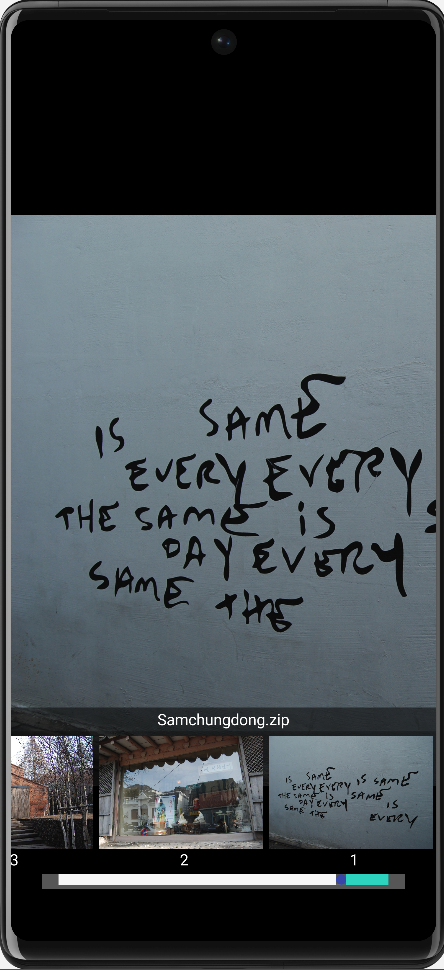 IS SAME
EVERY EVERY
THE SAME IS
DAY EVERY
SAME THE
Samchungdong.zip
IS SAME IS SAME
EVERY EVERY
THE SAME IS SAME
DAY EVERY IS
SAME THE EVERY
3 2 1